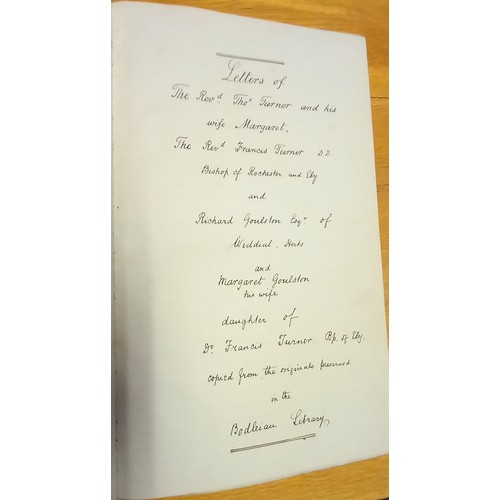 Letters of
The Revd. Thos Turner and his
wife Margaret.
The Revd Francis Turner D.D.
Bishop of Rochester and Ely
and
Richard Goulston Esqr of
Widdial. Herts
and
Margaret Goulston
his wife
daughter of
Dr Francis Turner Bp. of Ely.
copied from the originals preserved
in the
Bodleian Library